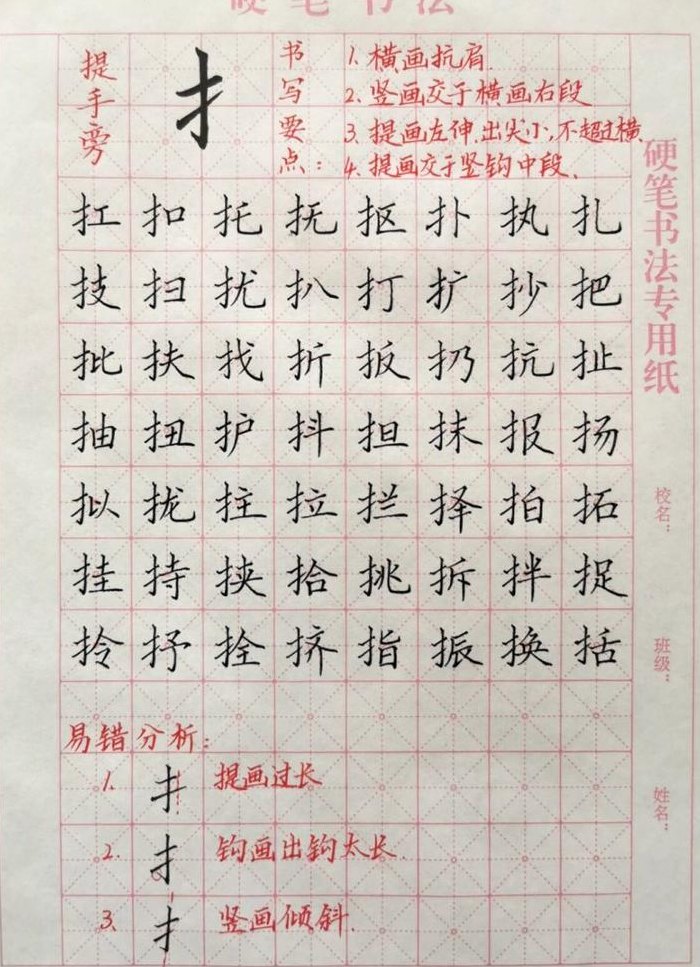 硬笔书法
提手旁
扌
书写要点：
1. 横画抗肩.
2. 竖画交于横画右段
3. 提画左伸,出尖小,不超过横.
4. 提画交于竖钩中段.
扛扣托抚抠扑执扎
技扫扰扒打扩抄把
批扶找折扳扔抗扯
抽扭护抖担抹报扬
拟拢拄拉拦择拍拓
挂持挟拾挑拆拌捉
拎抒拴挤指振换括
易错分析：
1. 扌 提画过长
2. 扌 钩画出钩太长
3. 扌 竖画倾斜.
硬笔书法专用纸
校名：
班级：
姓名：